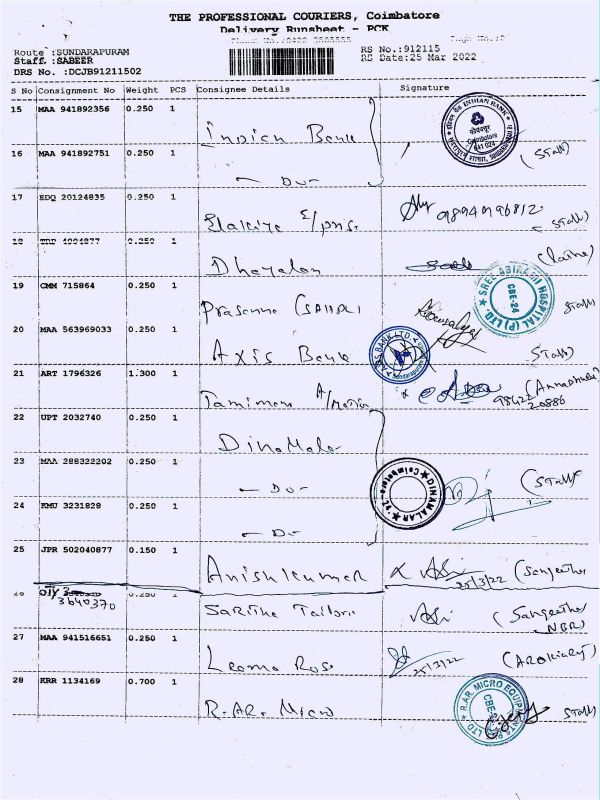 THE PROFESSIONAL COURIERS, Coimbatore
Delivery Runsheet - PCK
Route :SUNDARAPURAM
Staff. :SABEER
DRS No. :DCJB91211502
RS No.:912115
RS Date:25 Mar 2022
S No Consignment No Weight PCS Consignee Details Signature
15 MAA 941892356 0.250 1 Indian Bank
INDIAN BANK Coimbatore 641 024
16 MAA 942892751 0.250 1 - Do - (Staff)
17 EDQ 20124835 0.250 1 (Staff)
18 0.250 1 Dhayalan
19 CMM 715864 0.250 1 Prasanna
SREE ABIRAMI HOSPITAL (P) LTD. CBE-24 Staff
20 MAA 563969033 0.250 1 Axis Bank
AXIS BANK LTD. Staff)
21 ART 1796326 1.300 1 98422 20886
22 UPT 2032740 0.250 1 DinaMalar
23 MAA 288322202 0.250 1 - Do -
DINAMALAR Coimbatore-24 (Staff
24 KMU 3231828 0.250 1 - Do -
25 JPR 502040877 0.150 1 Anishkumar 25/3/22 (Sangeetha
OTY 3640370 0.250 1 (Sangeetha
NBR)
27 MAA 941516651 0.250 1 25/3/22
28 KRR 1134169 0.700 1 R.AR. Micro
R.AR. MICRO Staff)